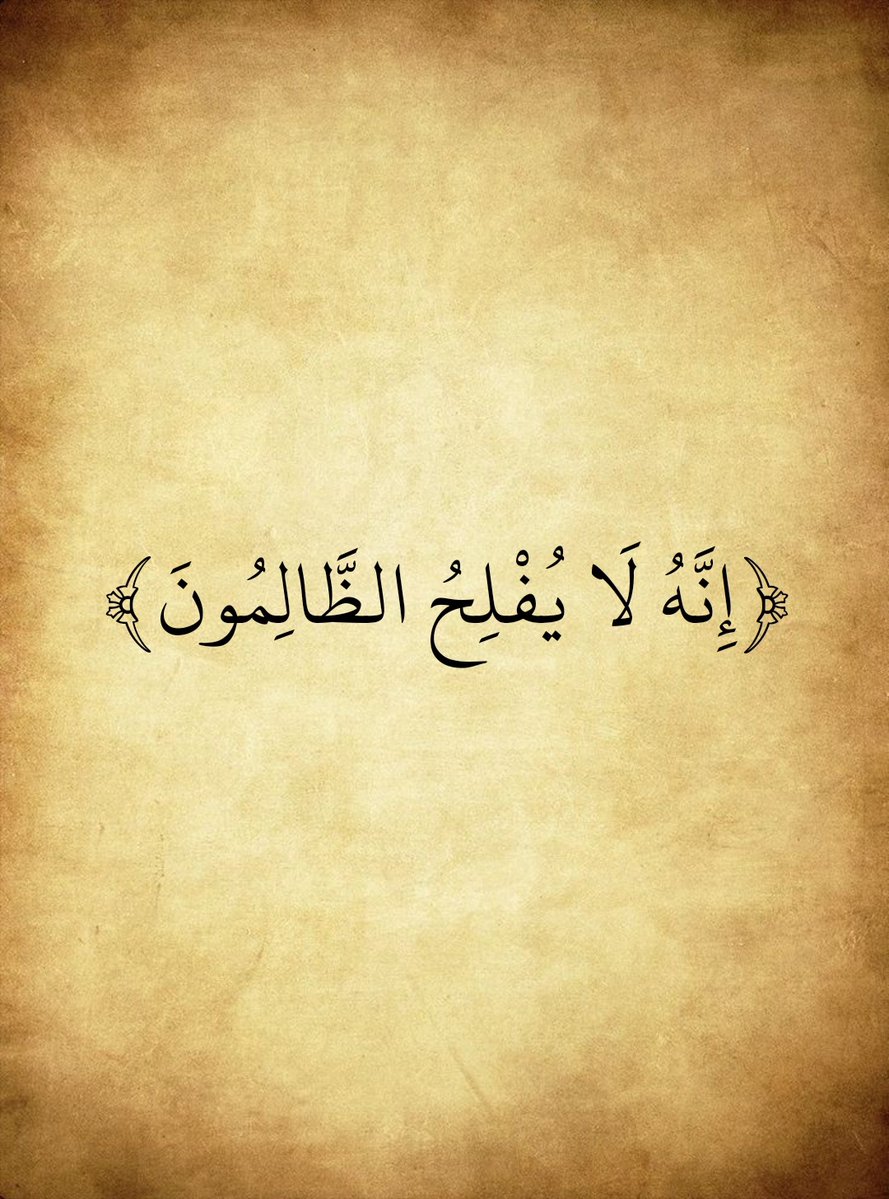 ﴿إِنَّهُ لَا يُفْلِحُ الظَّالِمُونَ﴾